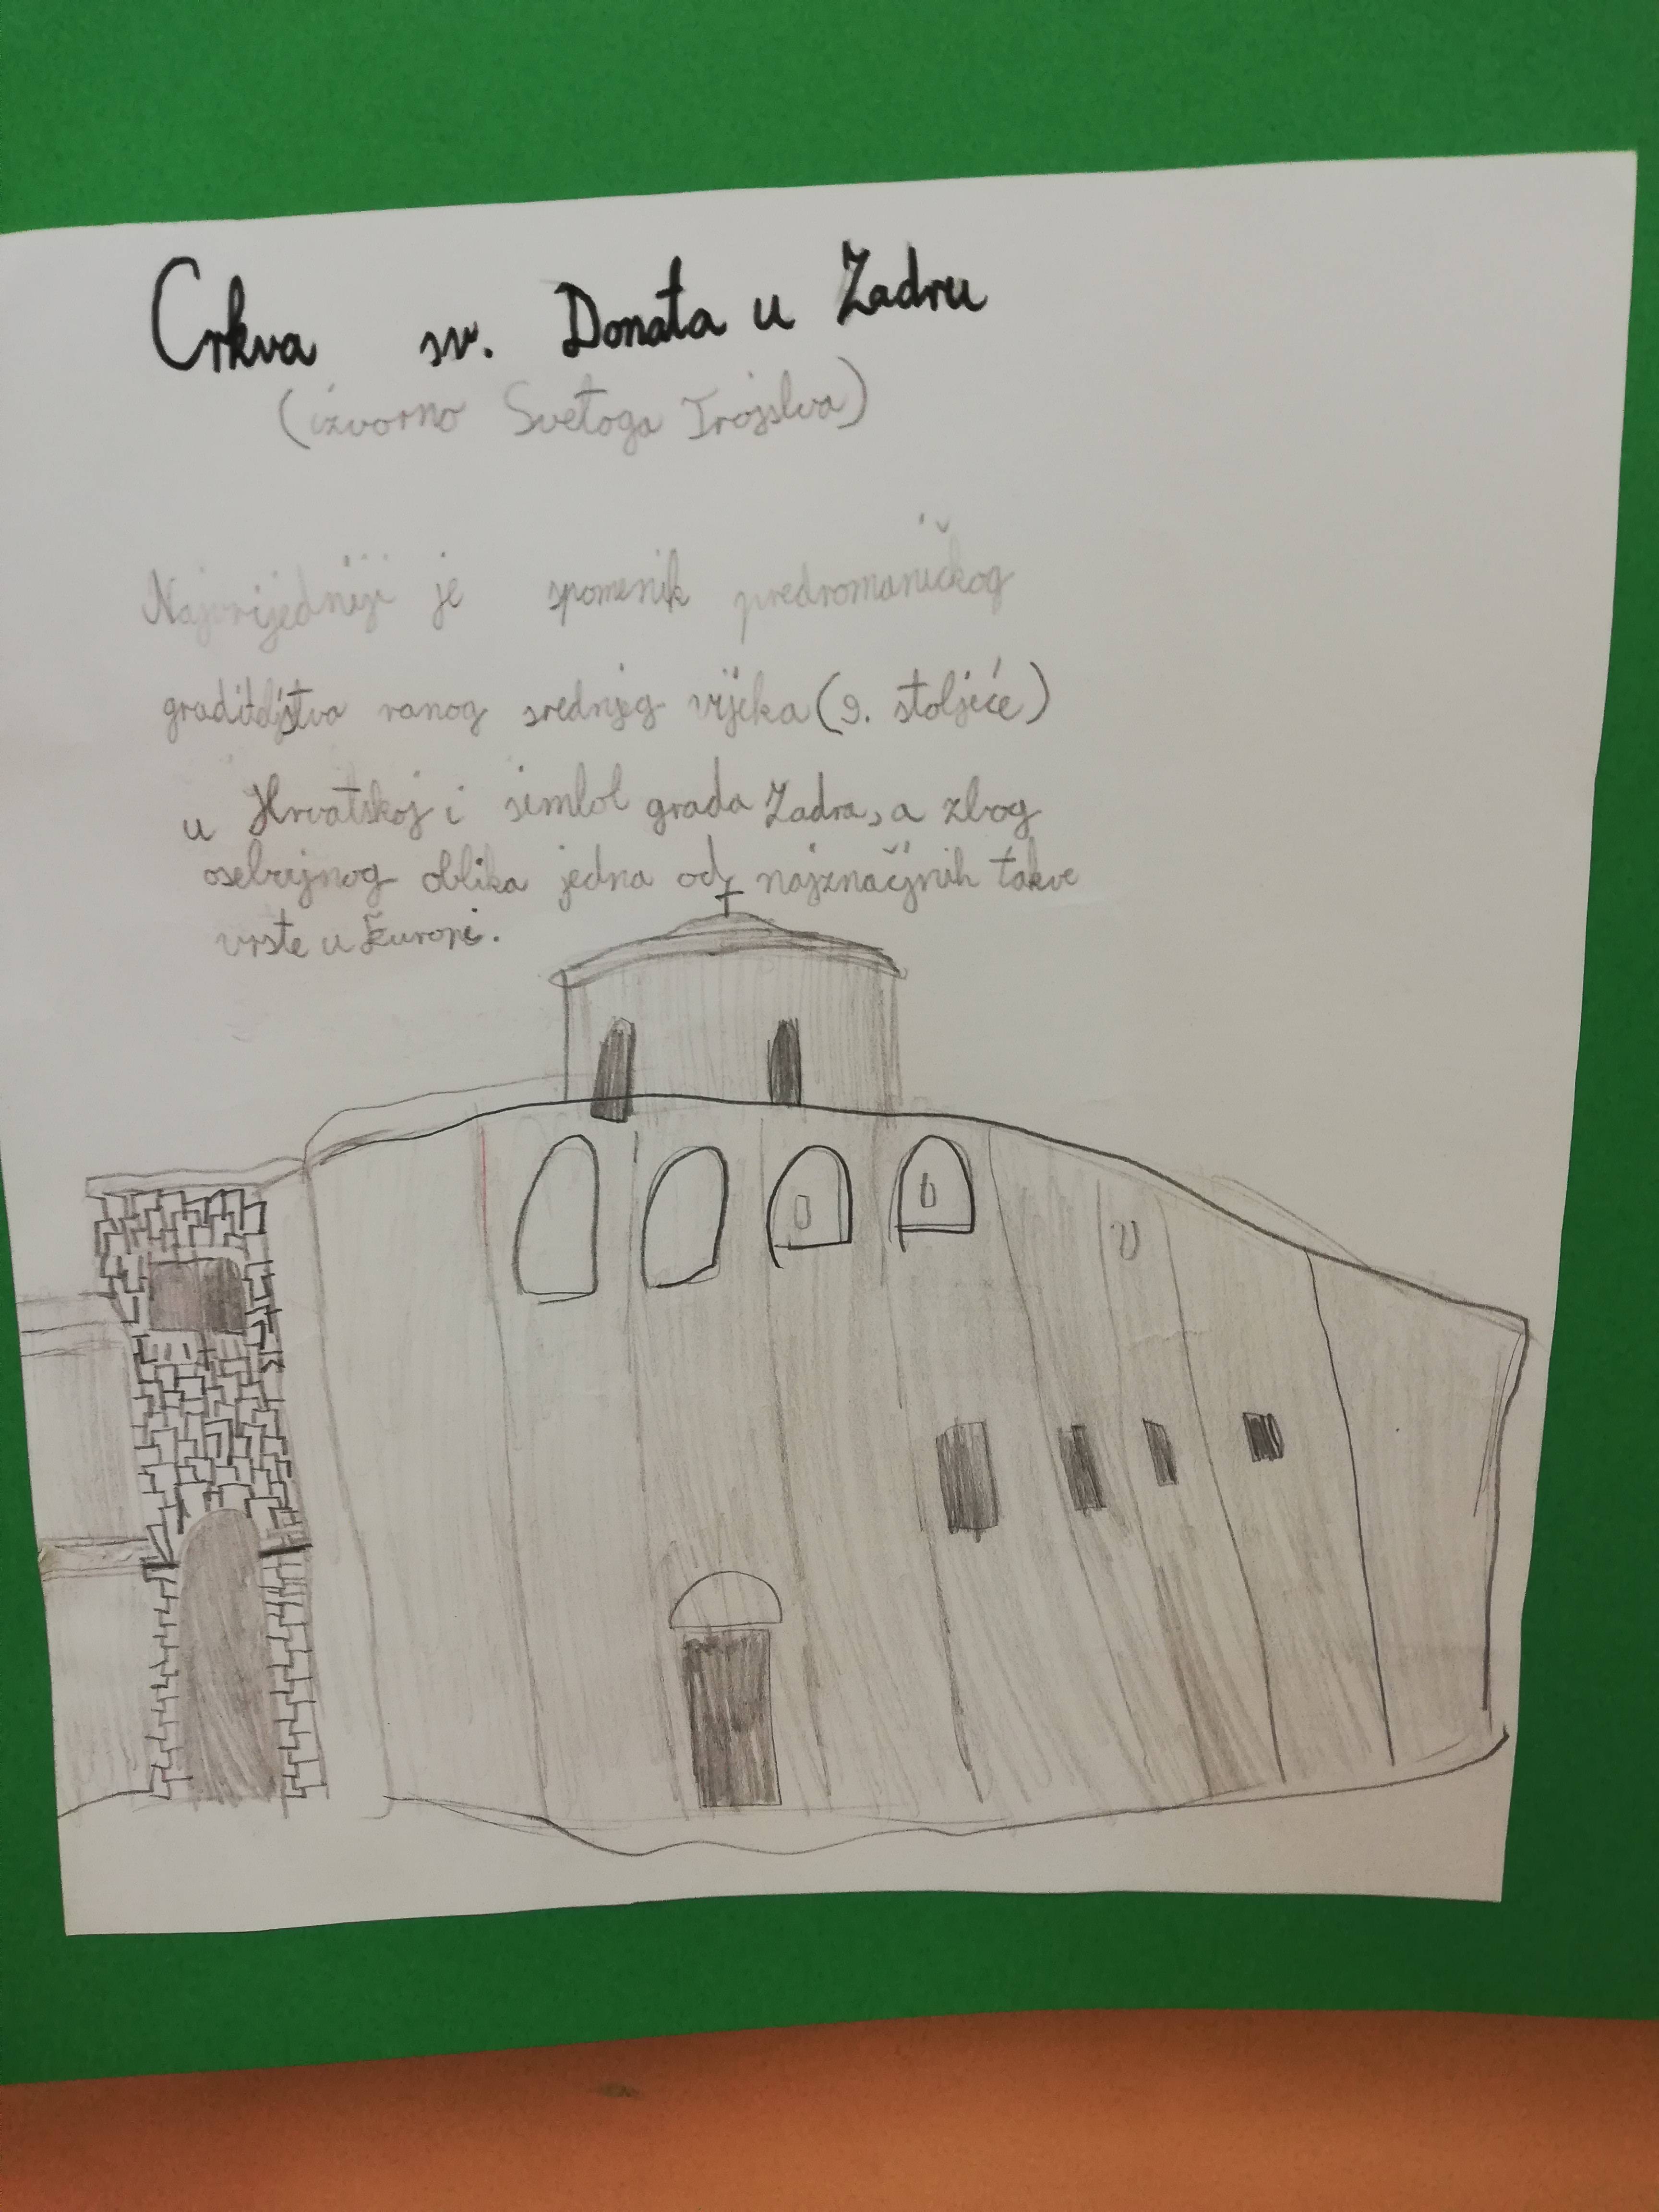 Crkva sv. Donata u Zadru
(izvorno Svetoga Trojstva)
Najvrijedniji je spomenik predromaničkog
graditeljstva ranog srednjeg vijeka (9. stoljeće)
u Hrvatskoj i simbol grada Zadra, a zbog
osebujnog oblika jedna od najznačjnih takve
vrste u Europi.